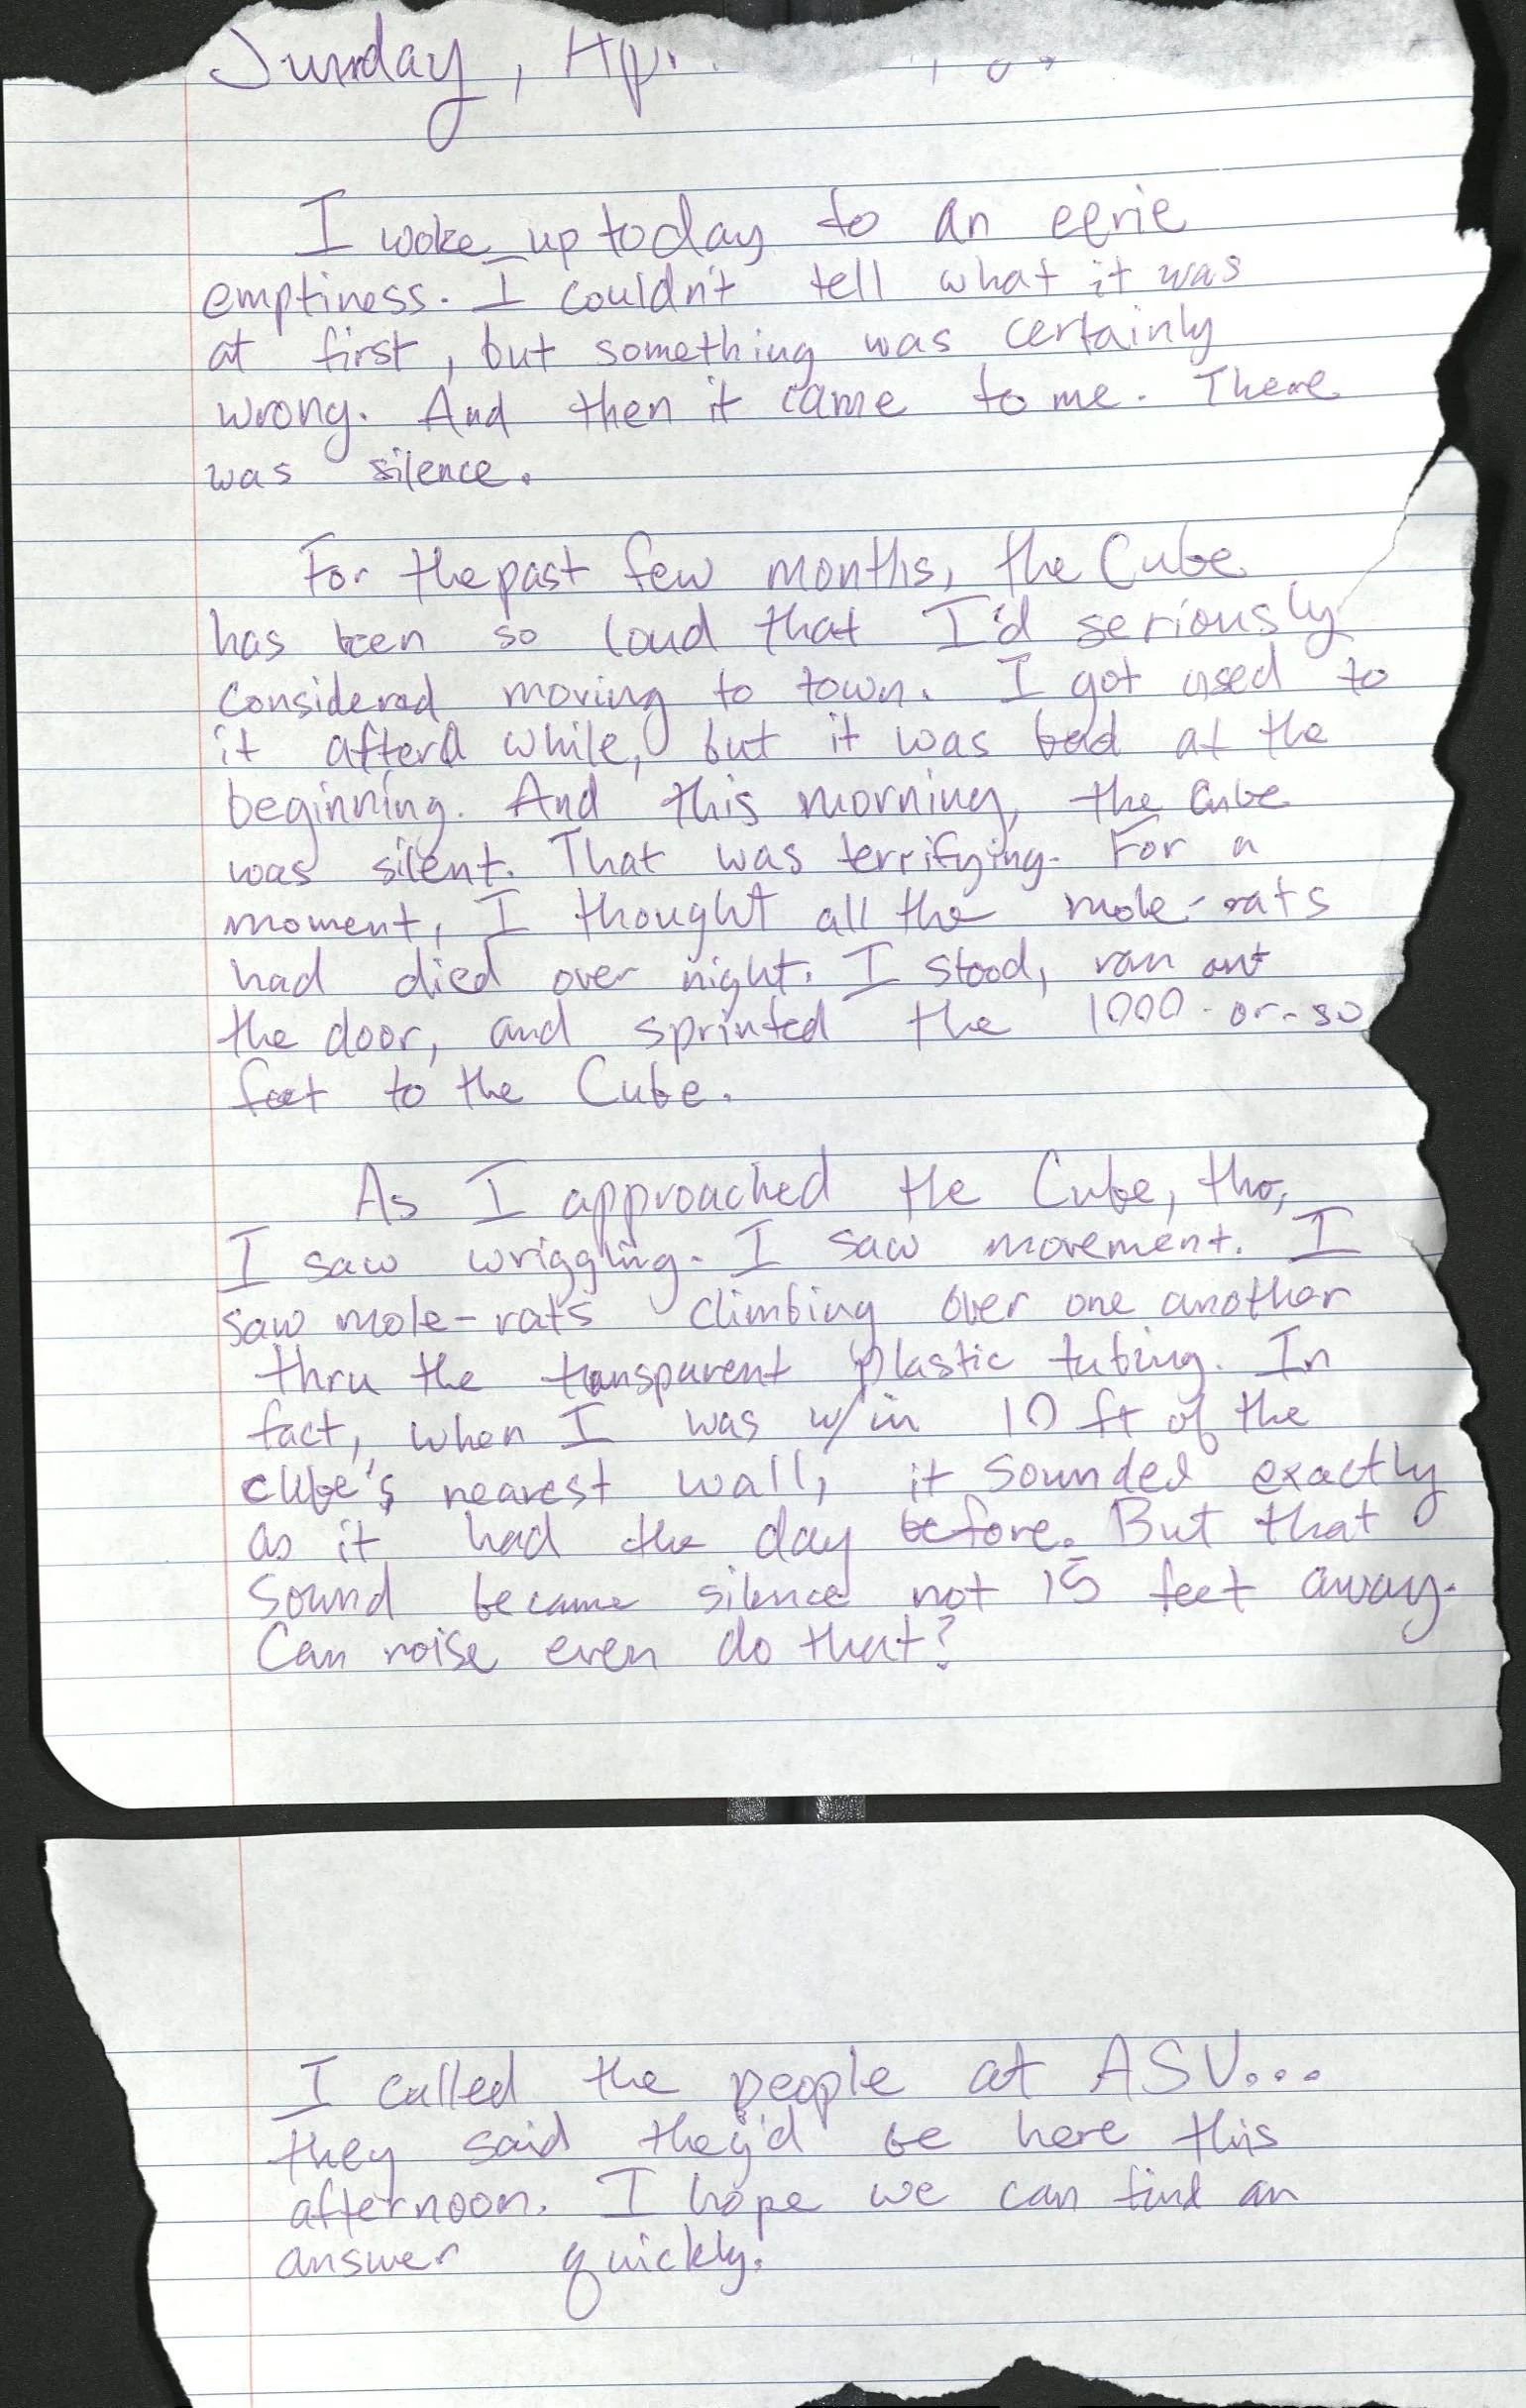 Sunday, Ap
I woke up today to an eerie
emptiness. I couldn't tell what it was
at first, but something was certainly
wrong. And then it came to me. There
was silence.
For the past few months, the Cube
has been so loud that I'd seriously
considered moving to town. I got used to
it after a while, but it was bad at the
beginning. And this morning, the Cube
was silent. That was terrifying. For a
moment, I thought all the mole-rats
had died over night. I stood, ran out
the door, and sprinted the 1000-or-so
feet to the Cube.
As I approached the Cube, tho,
I saw wriggling. I saw movement. I
saw mole-rats climbing over one another
thru the transparent plastic tubing. In
fact, when I was w/in 10 ft of the
cube's nearest wall, it sounded exactly
as it had the day before. But that
sound became silence not 15 feet away.
Can noise even do that?
I called the people at ASV...
they said they'd be here this
afternoon. I hope we can find an
answer quickly.